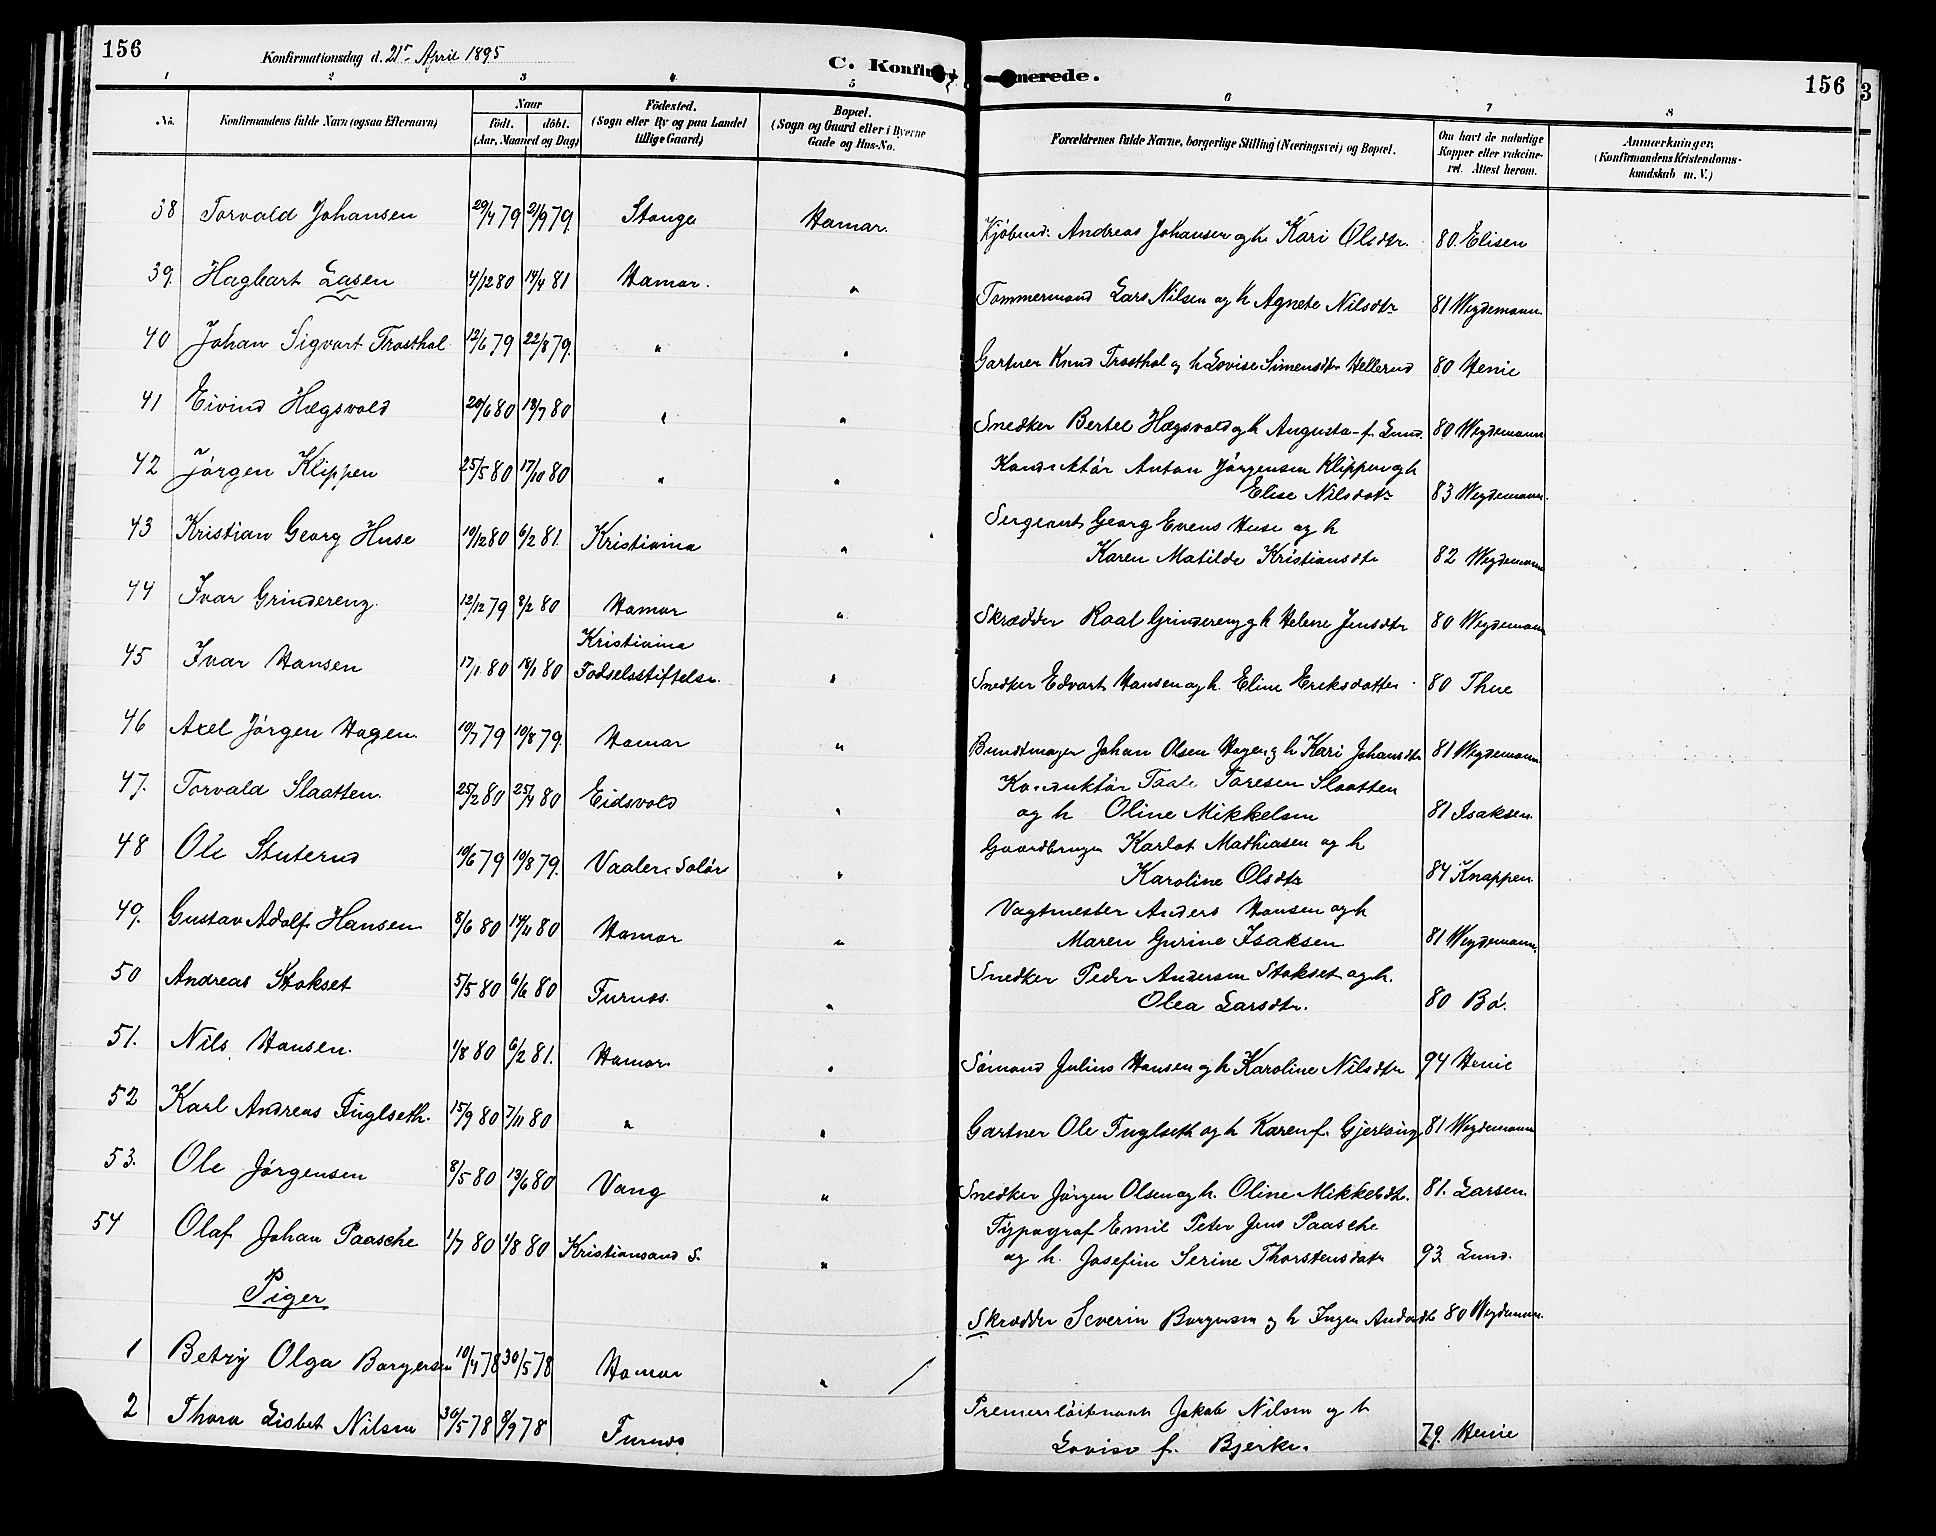 156
Konfirmationsdag d. 21' April 1895
C. Konfir
merede.
156
3
1 2 3 4 5 6 7 8
No.
Konfirmandens fulde Navn (ogsaa Efternavn)
Naar
födt. döbt.
(Aar, Maaned og Dag)
Födested.
(Sogn eller By og paa Landet
tillige Gaard)
Bopæl.
(Sogn og Gaard eller i Byerne
Gade og Hus-No.
Forældrenes fulde Navne, borgerlige Stilling (Næringsvei) og Bopæl.
Om havt de naturlige
Kopper eller vakcine-
ret. Attest herom.
Anmærkninger.
(Konfirmandens Kristendoms-
kundskab m. V.)
38 Torvald Johansen 29/4 79 21/9 79. Stange Hamar. Kjøbmd. Andreas Johansen og h. Kari Olsdtr. 80. Elisen
39. Hagbart Lasen 4/12 80 14/4 81 Hamar. " Tømmermand Lars Nilsen og h Agnete Nilsdtr 81 Weydemann.
40 Johan Sigvart Trosthol 12/6 79 22/8 79. " " Gartner Knud Trosthol og h Lovise Simensdtr Hellerud 80 Henie
41 Eivind Hægsvold 20/6 80 18/7 80 " " Snedker Bertel Hægsvold og h Augusta f. Lund. 80 Weydemann
42 Jørgen Klippen 25/5 80 17/10 80 " " Konduktör Anton Jørgensen Klippen og h
Elise Nilsdatr 83 Weydemann.
43 Kristian Georg Huse 19/12 80 6/2 81. Kristiania " Sergeant Georg Evens Huse og h
Karen Matilde Kristiansdtr 82 Weydemann
44 Ivar Grindereng. 12/12 79 8/2 80 Hamar " Skrædder Roal Grindereng og h Helene Jensdtr 80 Weydemann
45 Ivar Hansen 17/1 80 18/1 80 Kristiania
Fødselsstiftelse. " Snedker Edvart Hansen og h. Eline Eriksdatter 80 Thue
46 Axel Jørgen Hagen. 10/7 79 10/8 79. Hamar " Bundtmager Johan Olsen Hagen og h Kari Johansdtr 81 Weydemann
47. Torvald Slaatten. 25/2 80 25/4 80 Eidsvold " Konduktør Taale Toresen Slaatten
og h Oline Mikkelsen 81 Isaksen.
48 Ole Stuterud 19/6 79 10/8 79. Vaaler i Solør " Gaardbruger Karlot Mathiasen og h
Karoline Olsdtr 84 Knappen.
49. Gustav Adolf Hansen 8/6 80 14/11 80 Hamar " Vagtmester Anders Hansen og h
Maren Gurine Isaksen 81 Weydemann.
50 Andreas Stokset 5/5 80 6/6 80 Furnes. " Snedker Peder Andersen Stokset og h.
Olea Larsdtr. 80 Bø.
51. Nils Hansen. 1/8 80 6/2 81. Hamar " Sømand Julius Hansen og h Karoline Nilsdtr 94 Henie
52 Karl Andreas Fuglseth. 15/9 80 7/11 80 " " Gartner Ole Fuglseth og h Karen f. 81 Weydemann
53. Ole Jørgensen 8/5 80 13/6 80 Vang " Snedker Jørgen Olsen og h. Oline Mikkelsdtr. 81. Larsen.
54 Olaf Johan Paasche 1/7 80 1/8 80 Kristiansand S. " Typograf Emil Peter Jens Paasche
og h. Josefine Serine Thorstensdatr 93 Lund.
Piger
1 Betzy Olga Borgersen 10/4 78 30/5 78 Hamar " Skrædder Severin Borgersen og h Inger Andersdtr 80 Weydemann.
2 Thora Lisbet Nilsen 30/5 78 8/9 78 Furnes Premierløitnant Jakob Nilsen og h
Lovise f. Bjerke. 79. Henie